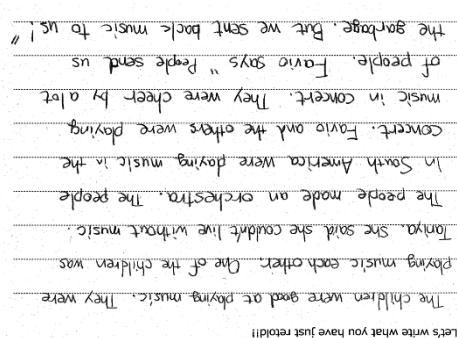 Let's write what you have just retold!!
The children were good at playing music. They were
playing music each other. One of the children was
Taniya. She said she couldn't live without music.
The people made an orchestra. The people
in South America were playing music in the
concert. Favio and the others were playing
music in concert. They were cheer by a lot
of people. Favio says "People send us
the garbage. But we sent back music to us!"